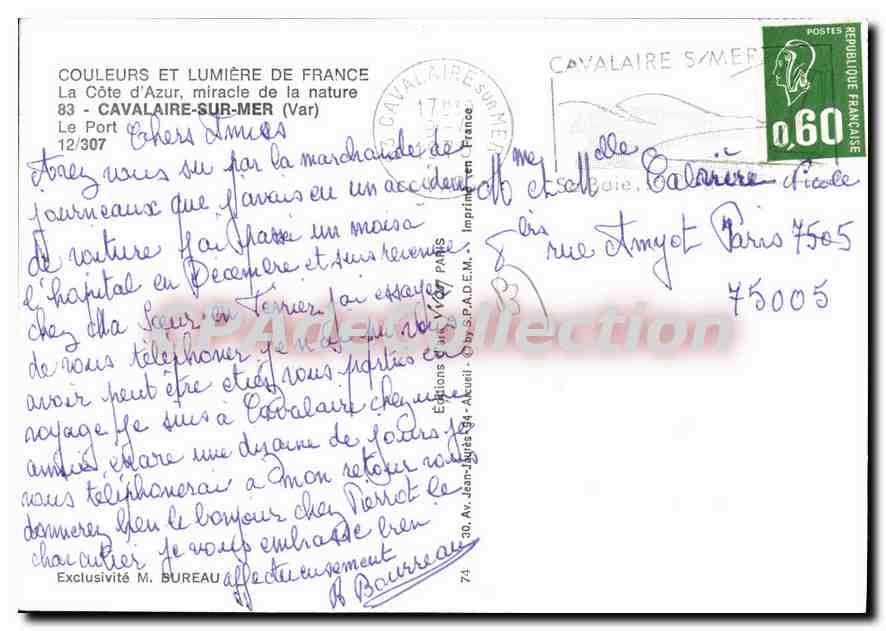 COULEURS ET LUMIÈRE DE FRANCE
La Côte d'Azur, miracle de la nature
83 - CAVALAIRE-SUR-MER (Var)
Le Port
12/307
Chers Amis
Avez vous su par la marchande de
journeaux que j'avais eu un accident
de voiture j'ai passé un mois à
l'hopital en Décembre et suis revenue
chez Ma Sœur en Fevrier j'ai essayé
de vous téléphoner je n'ai pu vous
avoir peut être etiez vous parties en
voyage je suis à Cavalaire chez une
amie encore une dizaine de jours je
vous téléphonerai a mon retour vous
donnerez bien le bonjour chez Pierrot le
charcutier je vous embrasse bien
affectueusement
Bourreau
Exclusivité M. BUREAU
Éditions d'art YVON PARIS
74 30, Av. Jean-Jaurès - 94 - Arcueil - © by S.P.A.D.E.M. - Imprimé en France
83 CAVALAIRE SUR MER
17 H
CAVALAIRE S/MER
Sa Baie,
POSTES
REPUBLIQUE FRANÇAISE
0,60
Mme et Melle Nicole
8 bis rue Amyot Paris 7505
75005
B
CPADeCollection